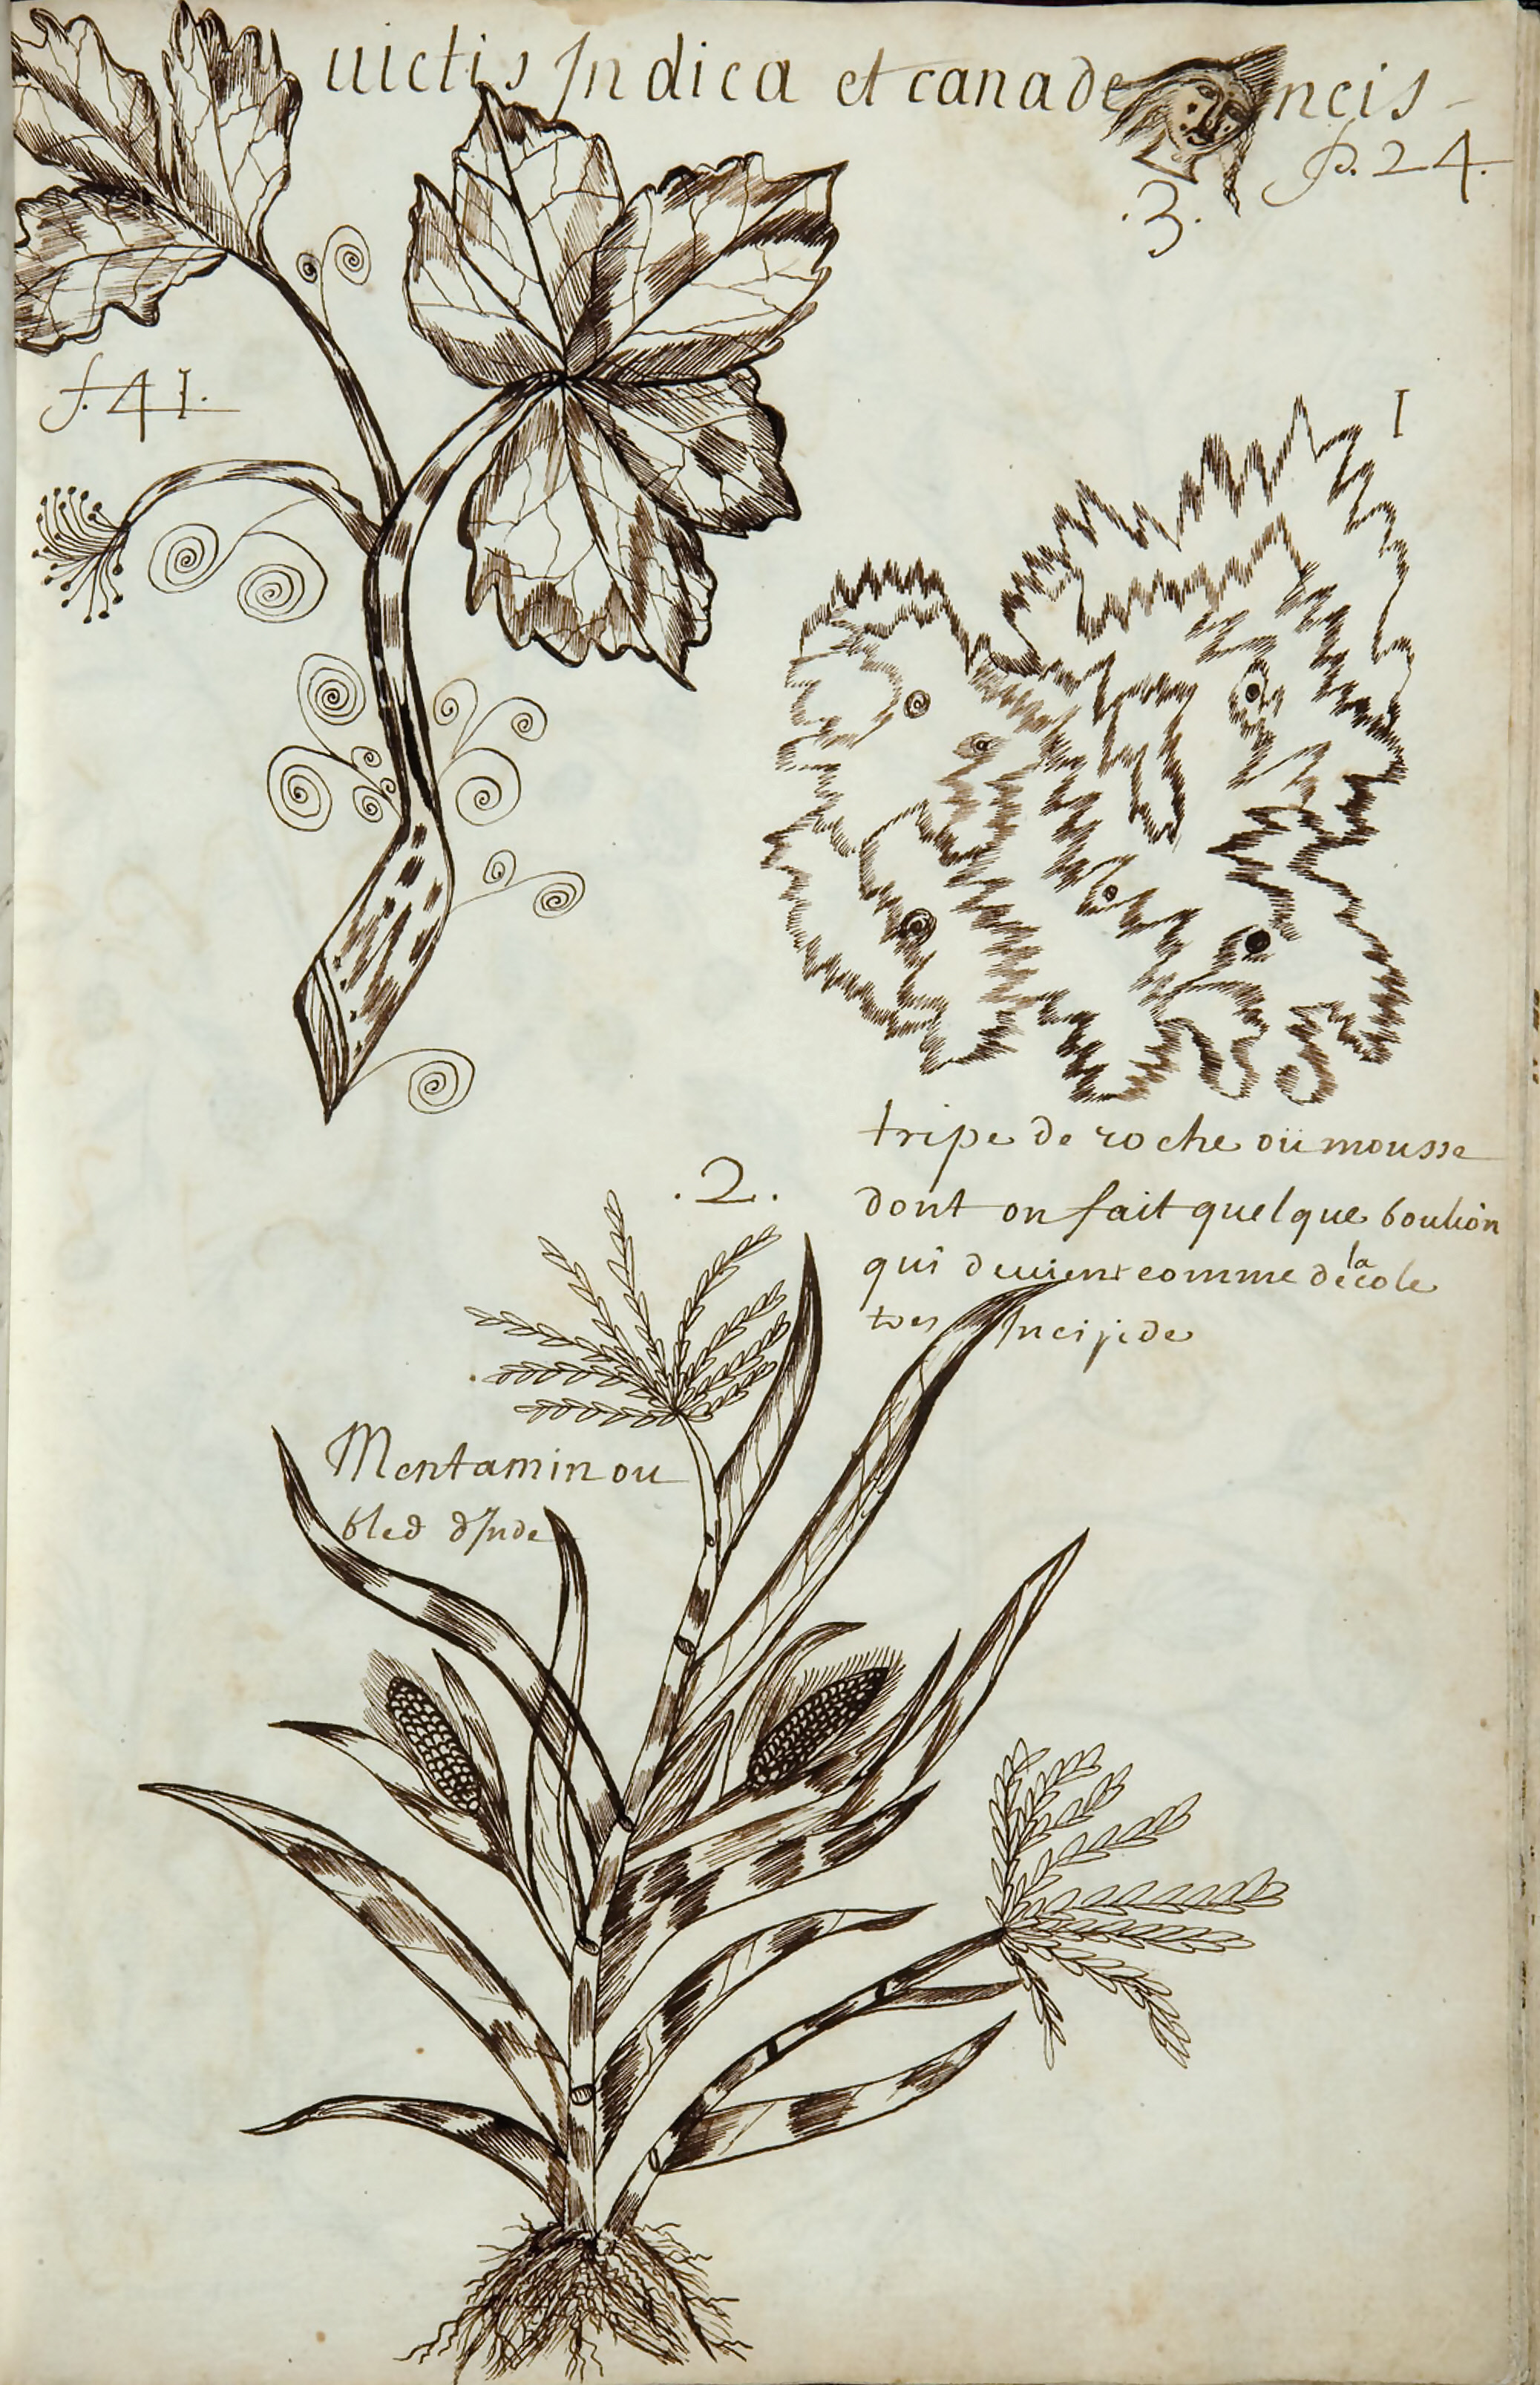 uictis Indica et canadencis
p. 24.
.3.
f. 41.
I
tripe de roche oü mousse
dont on fait quelque boulion
qui deuient comme de la cole
tres Incipide
.2.
Mentamin ou
bled dInde